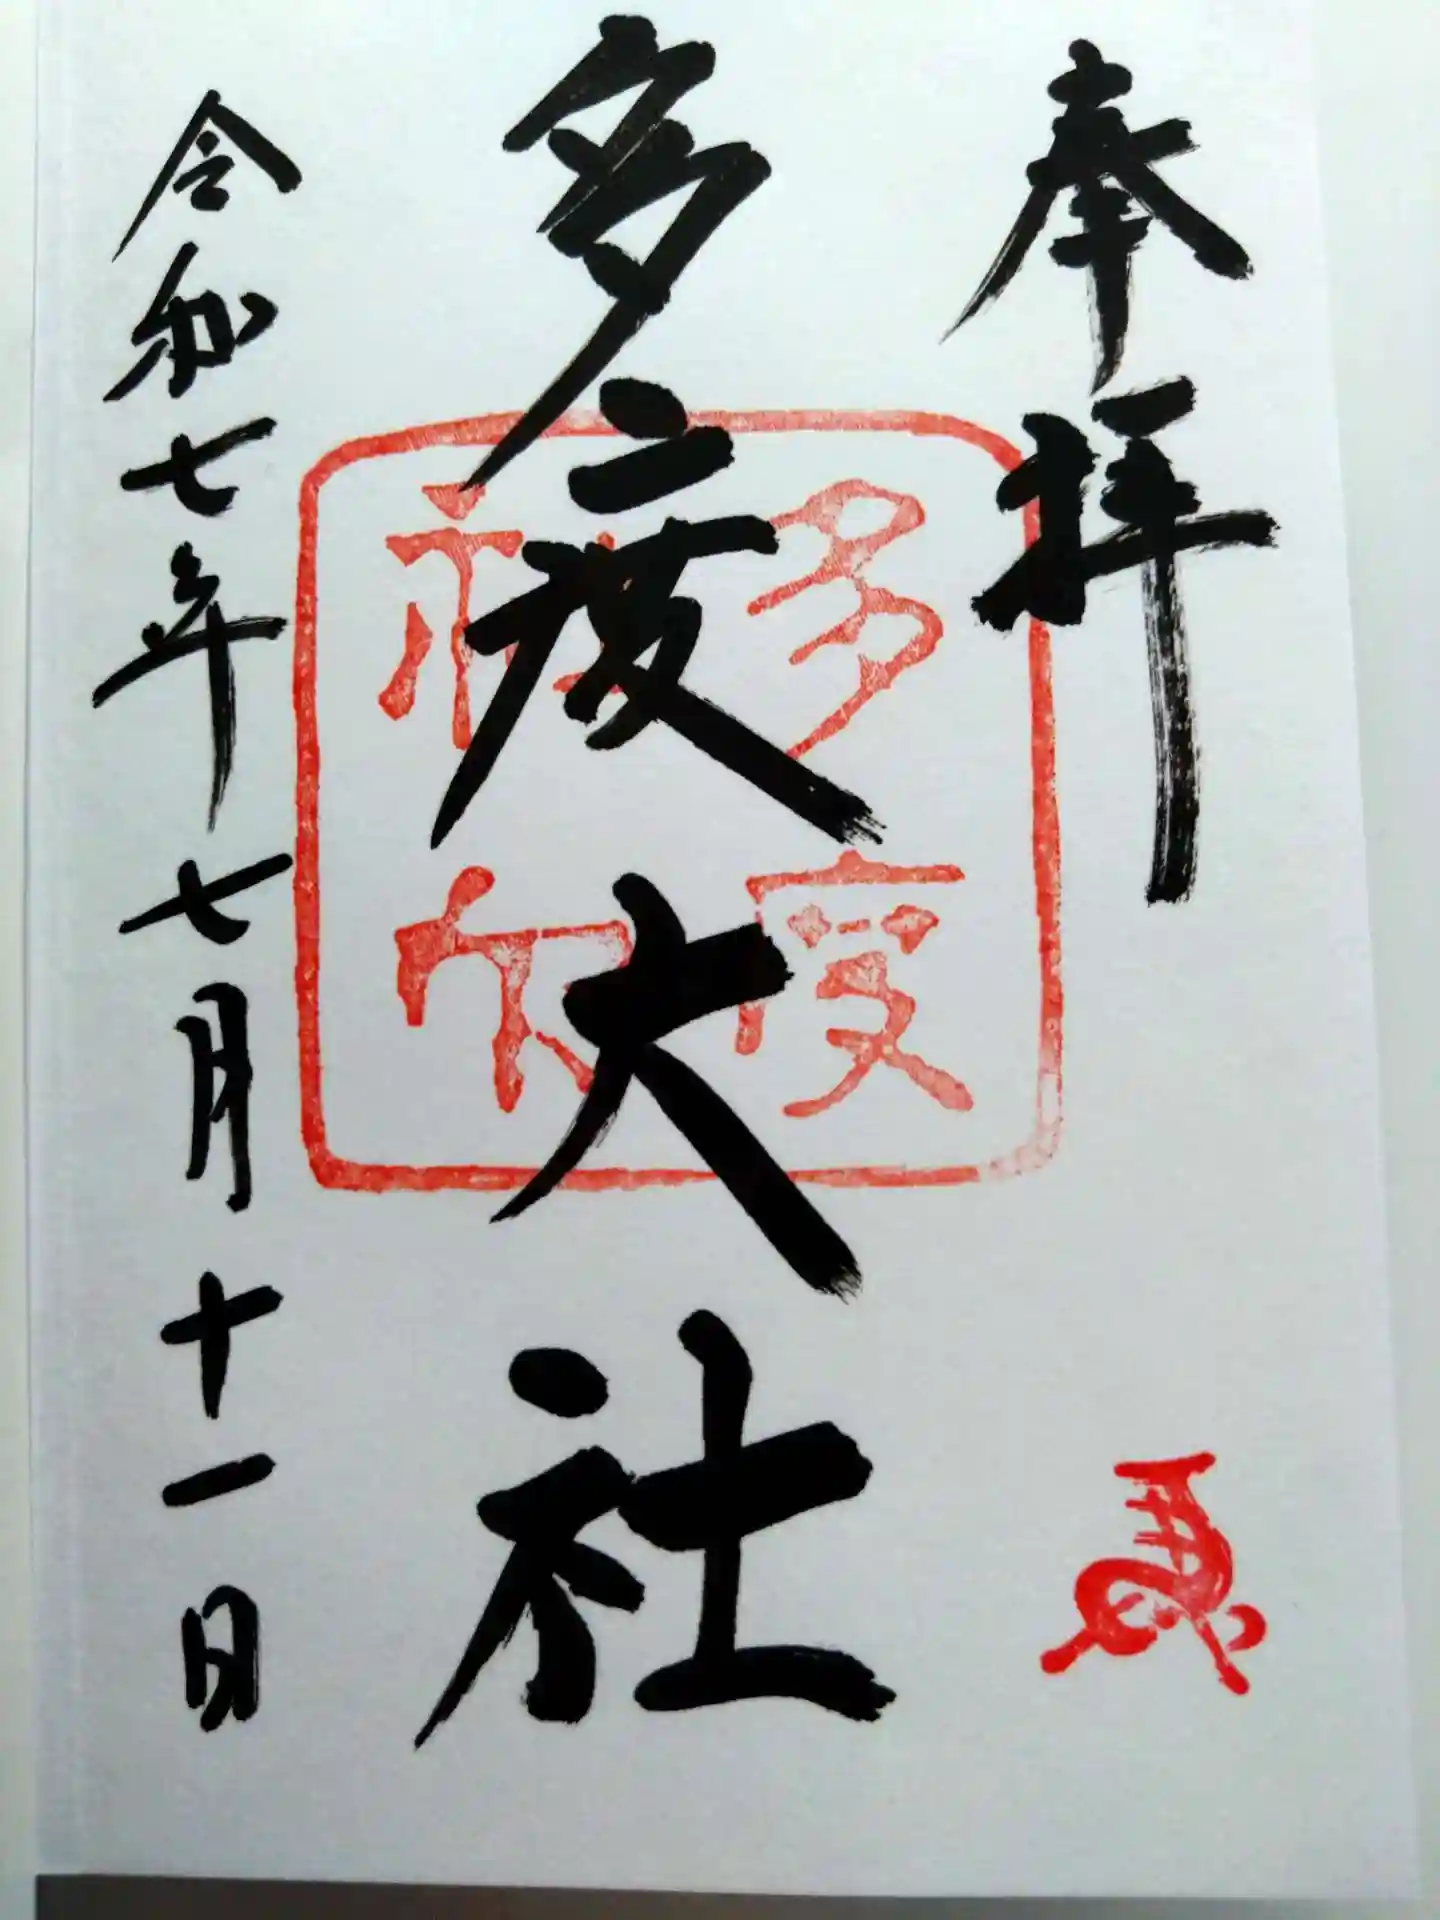 奉拝
多度大社
令和七年七月十一日
多度
神社